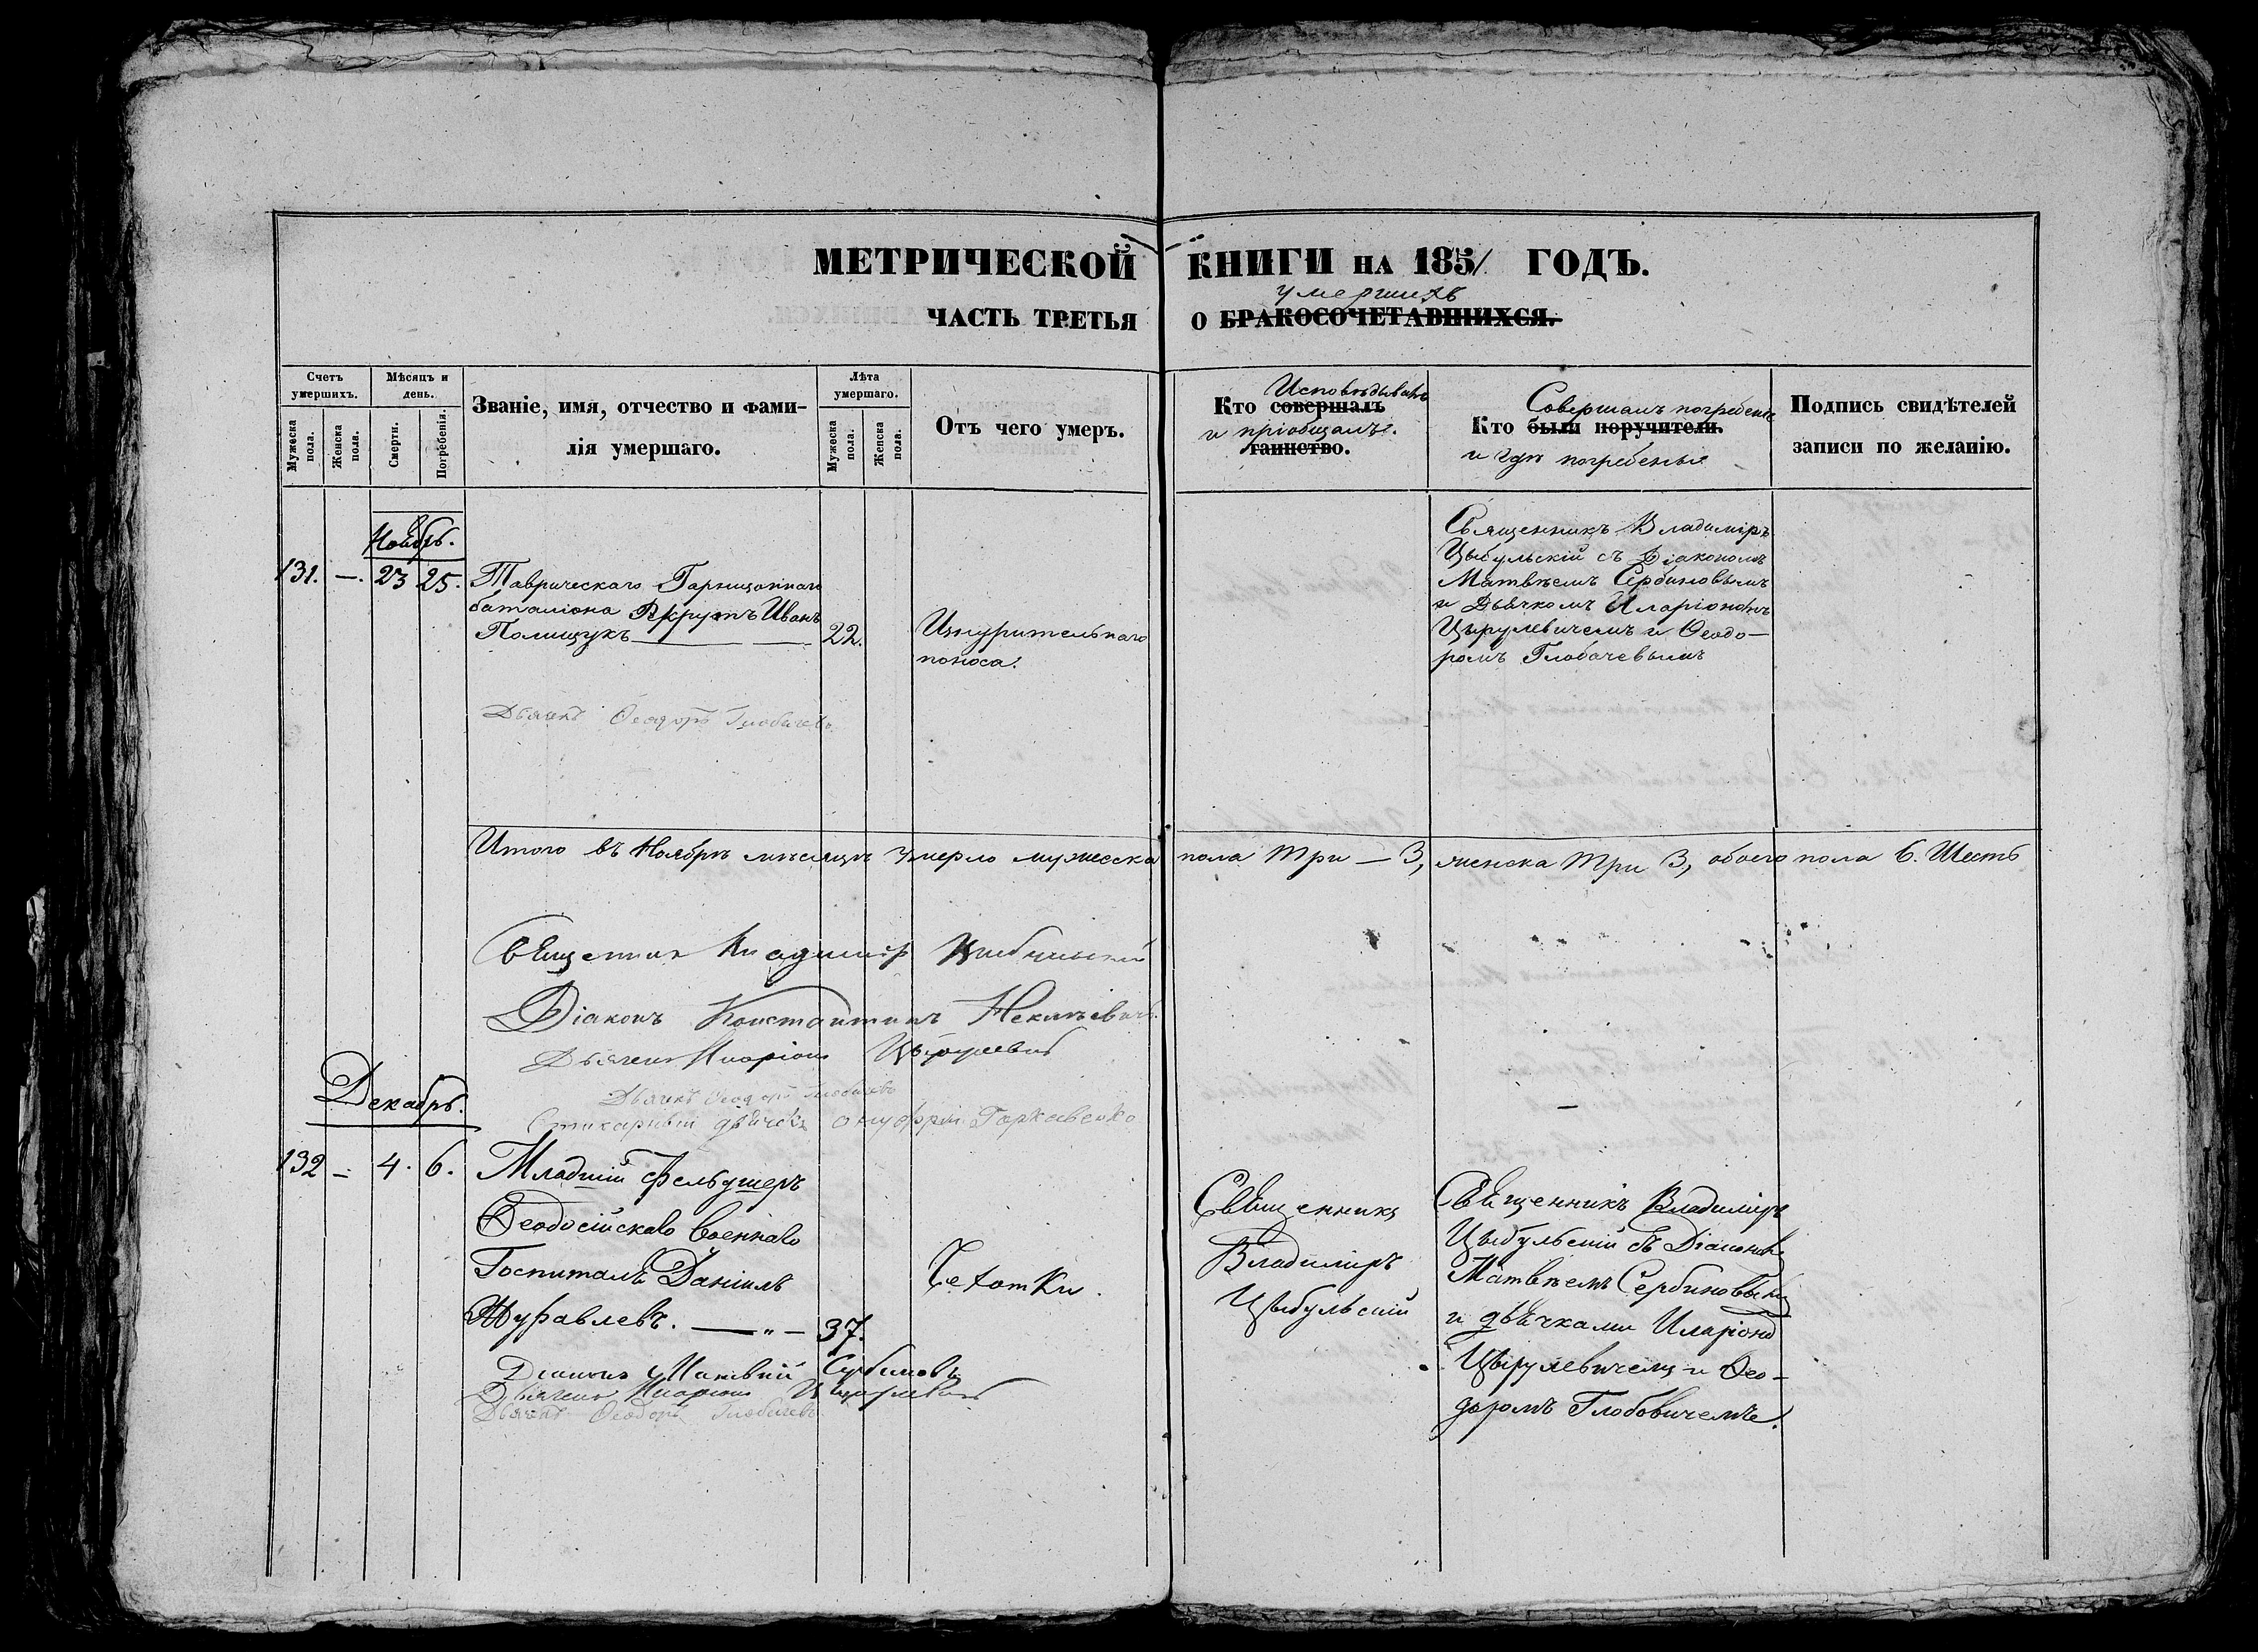 МЕТРИЧЕСКОЙ КНИГИ НА 1851 ГОДЪ.
умершихъ
ЧАСТЬ ТРЕТЬЯ О БРАКОСОЧЕТАВШИХСЯ.
Счетъ умершихъ.
Мужеска пола.
Женска пола.
Мѣсяцъ и день.
Смерти.
Погребенія.
Званіе, имя, отчество и фами-
лія умершаго.
Лѣта умершаго.
Мужеска пола.
Женска пола.
Отъ чего умеръ.
Исповѣдывалъ
Кто совершалъ
и пріобщалъ.
таинство.
Совершалъ погребеніе
Кто были поручители.
и гдѣ погребены
Подпись свидѣтелей
записи по желанію.
Ноябрь.
131. —. 23 25.
Таврическаго Гарнизоннаго
баталіона Рекрутъ Иванъ
Полищукъ 22.
Изнурительнаго
поноса.
Священникъ Владиміръ
Цыбульскій съ Діакономъ
Матвѣемъ Сербиновымъ
и Дьячкомъ Иларіономъ
Цырулевичемъ и Ѳеодо—
ромъ Глобачевымъ
Дьячекъ Ѳеодоръ Глобачевъ
Итого въ Ноябрѣ мѣсяцѣ умерло мужеска пола три — 3, женска три 3, обоего пола 6. Шесть
Священникъ Владиміръ Цыбульскій
Діаконъ Константинъ
Дьячекъ Иларіонъ Цырулевичъ
Дьячекъ Ѳеодоръ Глобачевъ
Стихарный дьячекъ Онуфрій Горкавенко
Декабрь.
132 — 4. 6.
Младшій Фельдшеръ
Ѳеодосійскаго военнаго
Госпиталя Даніилъ
Журавлевъ. — „ — 37.
Чехотки.
Священникъ
Владиміръ
Цыбульскій
Священникъ Владиміръ
Цыбульскій съ Діакономъ
Матвѣемъ Сербиновымъ
и дьячками Иларіономъ
Цырулевичемъ и Ѳео—
доромъ Глобовичемъ.
Діаконъ Матвѣй Сербиновъ
Дьячекъ Иларіонъ Цырулевичъ
Дьячекъ Ѳеодоръ Глобачевъ